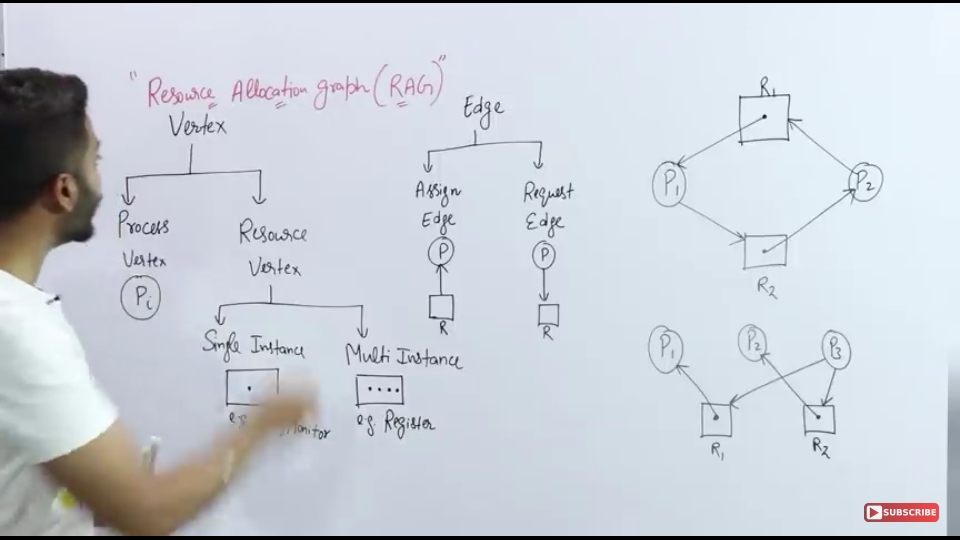 "Resource Allocation graph (RAG)"
Vertex
Process
Vertex
Pi
Resource
Vertex
Single Instance
e.g.
Monitor
Multi Instance
e.g. Register
Edge
Assign
Edge
P
R
Request
Edge
P
R
R1
P1
P2
R2
P1
P2
P3
R1
R2
SUBSCRIBE